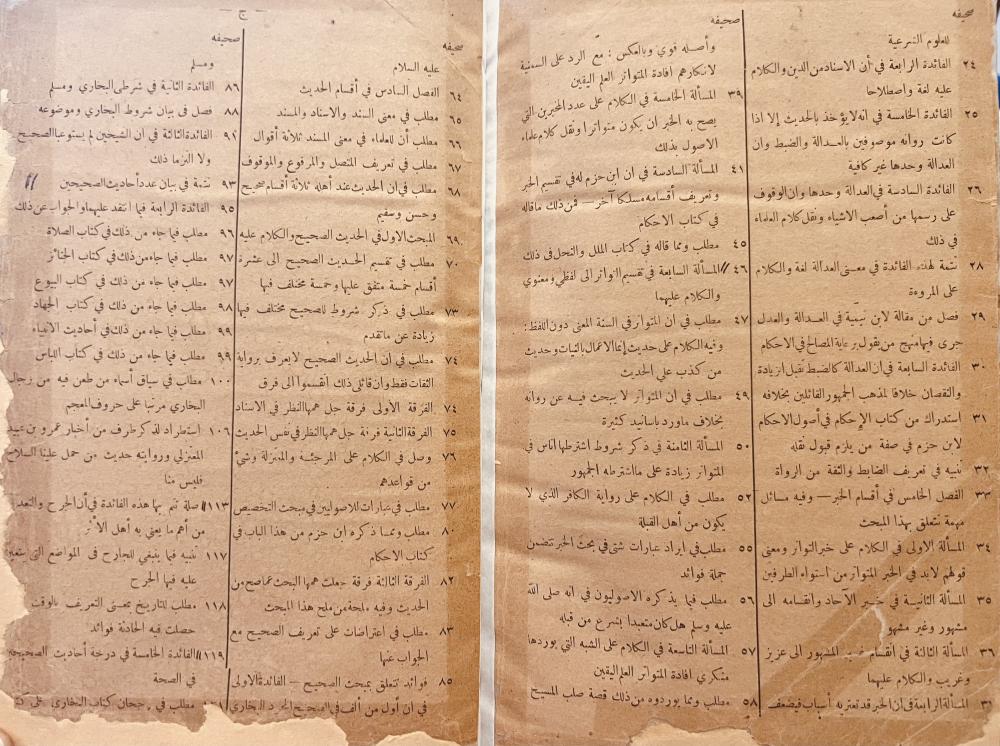 صحيفه
للعلوم الشرعية
٢٤ الفائدة الرابعة في أن الاسناد من الدين والكلام
عليه لغة واصطلاحا
٢٥ الفائدة الخامسة في انه لا يؤخذ بالحديث إلا اذا
كانت رواته موصوفين بالعدالة والضبط وان
العدالة وحدها غير كافية
٢٦ الفائدة السادسة في العدالة وحدها وان الوقوف
على رسمها من أصعب الاشياء ونقل كلام العلماء
في ذلك
٢٨ تتمة لهذه الفائدة في معنى العدالة لغة والكلام
على المروءة
٢٩ فصل من مقالة لابن تيمية في العدالة والعدل
جرى فيها منهج من يقول برعاية المصالح في الاحكام
٣٠ الفائدة السابعة في ان العدالة كالضبط تقبل الزيادة
والنقصان خلافا لمذهب الجمهور القائلين بخلافه
٣١ استدراك من كتاب الإحكام في أصول الاحكام
لابن حزم في صفة من يلزم قبول نقله
٣٢ تنبيه في تعريف الضابط والثقة من الرواة
٣٣ الفصل الخامس في أقسام الخبر — وفيه مسائل
مهمة تتعلق بهذا المبحث
٣٤ المسألة الاولى في الكلام على خبر التواتر ومعنى
قولهم لابد في الخبر المتواتر من استواء الطرفين
٣٥ المسألة الثانية في خبر الآحاد وانقسامه الى
مشهور وغير مشهور
٣٦ المسألة الثالثة في انقسام غير المشهور الى عزيز
وغريب والكلام عليهما
المسألة الرابعة في ان الخبر قد تعتريه أسباب فيضعف
صحيفه
وأصله قوي وبالعكس : مع الرد على السمنية
لانكارهم افادة المتواتر العلم اليقين
٣٩ المسألة الخامسة في الكلام على عدد المخبرين التي
يصح به الخبر ان يكون متواترا ونقل كلام علماء
الاصول بذلك
٤١ المسألة السادسة في ان ابن حزم له في تقسيم الخبر
وتعريف أقسامه مسلكا آخر — فمن ذلك ماقاله
في كتاب الاحكام
٤٥ مطلب ومما قاله في كتاب الملل والنحل في ذلك
٤٦ المسألة السابعة في تقسيم التواتر الى لفظي ومعنوي
والكلام عليهما
٤٧ مطلب في ان المتواتر في السنة المعنى دون اللفظ :
وفيه الكلام على حديث إنما الاعمال بالنيات وحديث
من كذب علي الحديث
٤٩ مطلب في ان المتواتر لا يبحث فيه عن رواته
بخلاف ماورد باسانيد كثيرة
٥٠ المسألة الثامنة في ذكر شروط اشترطها اناس في
المتواتر زيادة على ما اشترطه الجمهور
٥٢ مطلب في الكلام على رواية الكافر الذي لا
يكون من أهل القبلة
٥٥ مطلب في ايراد عبارات شتى في بحث الخبر تتضمن
جملة فوائد
٥٦ مطلب فيما يذكره الاصوليون في انه صلى الله
عليه وسلم هل كان متعبدا بشرع من قبله
٥٧ المسألة التاسعة في الكلام على الشبه التي يوردها
منكري افادة المتواتر العلم اليقين
٥٨ مطلب ومما يوردوه من ذلك قصة صلب المسيح
— ج —
صحيفه
عليه السلام
٦٤ الفصل السادس في أقسام الحديث
٦٥ مطلب في معنى السند والاسناد والمسند
٦٦ مطلب أن للعلماء في معنى المسند ثلاثة أقوال
٦٧ مطلب في تعريف المتصل والمرفوع والموقوف
٦٨ مطلب في ان الحديث عند أهله ثلاثة أقسام صحيح
وحسن وسقيم
٦٩ المبحث الاول في الحديث الصحيح والكلام عليه
٧٠ مطلب في تقسيم الحديث الصحيح الى عشرة
أقسام خمسة متفق عليها وخمسة مختلف فيها
٧٣ مطلب في ذكر شروط للصحيح مختلف فيها
زيادة عن ماتقدم
٧٤ مطلب في ان الحديث الصحيح لايعرف برواية
الثقات فقط وان قائل ذلك انقسموا الى فرق
٧٤ الفرقة الأولى فرقة جل همها النظر في الاسناد
٧٥ الفرقة الثانية فرقة جل همها النظر في نفس الحديث
٧٦ وصل في الكلام على المرجئة والمعتزلة وشيء
من قواعدهم
٧٧ مطلب في عبارات للاصوليين في مبحث التخصيص
٨٠ مطلب ومما ذكره ابن حزم من هذا الباب في
كتاب الاحكام
٨٢ الفرقة الثالثة فرقة جعلت همها البحث عما صح من
الحديث وفيه ملحة من ملح هذا المبحث
٨٣ مطلب في اعتراضات على تعريف الصحيح مع
الجواب عنها
٨٥ فوائد تتعلق بمبحث الصحيح — الفائدة الاولى
في ان أول من ألف في الصحيح المجرد البخاري
صحيفه
ومسلم
٨٦ الفائدة الثانية في شرطي البخاري ومسلم
٨٨ فصل في بيان شروط البخاري وموضوعه
٩١ الفائدة الثالثة في ان الشيخين لم يستوعبا الصحيح
ولا التزما ذلك
٩٣ تتمة في بيان عدد أحاديث الصحيحين
٩٥ الفائدة الرابعة فيما انتقد عليهما والجواب عن ذلك
٩٦ مطلب فيما جاء من ذلك في كتاب الصلاة
٩٧ مطلب فيما جاء من ذلك في كتاب الجنائز
٩٧ مطلب فيما جاء من ذلك في كتاب البيوع
٩٨ مطلب فيما جاء من ذلك في كتاب الجهاد
٩٩ مطلب فيما جاء من ذلك في أحاديث الانبياء
٩٩ مطلب فيما جاء من ذلك في كتاب اللباس
١٠٠ مطلب في سياق أسماء من طعن فيه من رجال
البخاري مرتبا على حروف المعجم
١٠٦ استطراد لذكر طرف من أخبار عمرو بن عبيد
المعتزلي وروايته حديث من حمل علينا السلاح
فليس منا
١١٣ صلة تتم بها هذه الفائدة في أن الجرح والتعد
من أهم ما يعنى به أهل
١١٧ تنبيه فيما ينبغي للجارح في المواضع التي
عليه فيها الجرح
١١٨ مطلب للتاريخ بمعنى التعريف بالوقت
حصلت فيه الحادثة فوائد
١١٩ الفائدة الخامسة في درجة أحاديث الصحيحين
في الصحة
مطلب في رجحان كتاب البخاري على